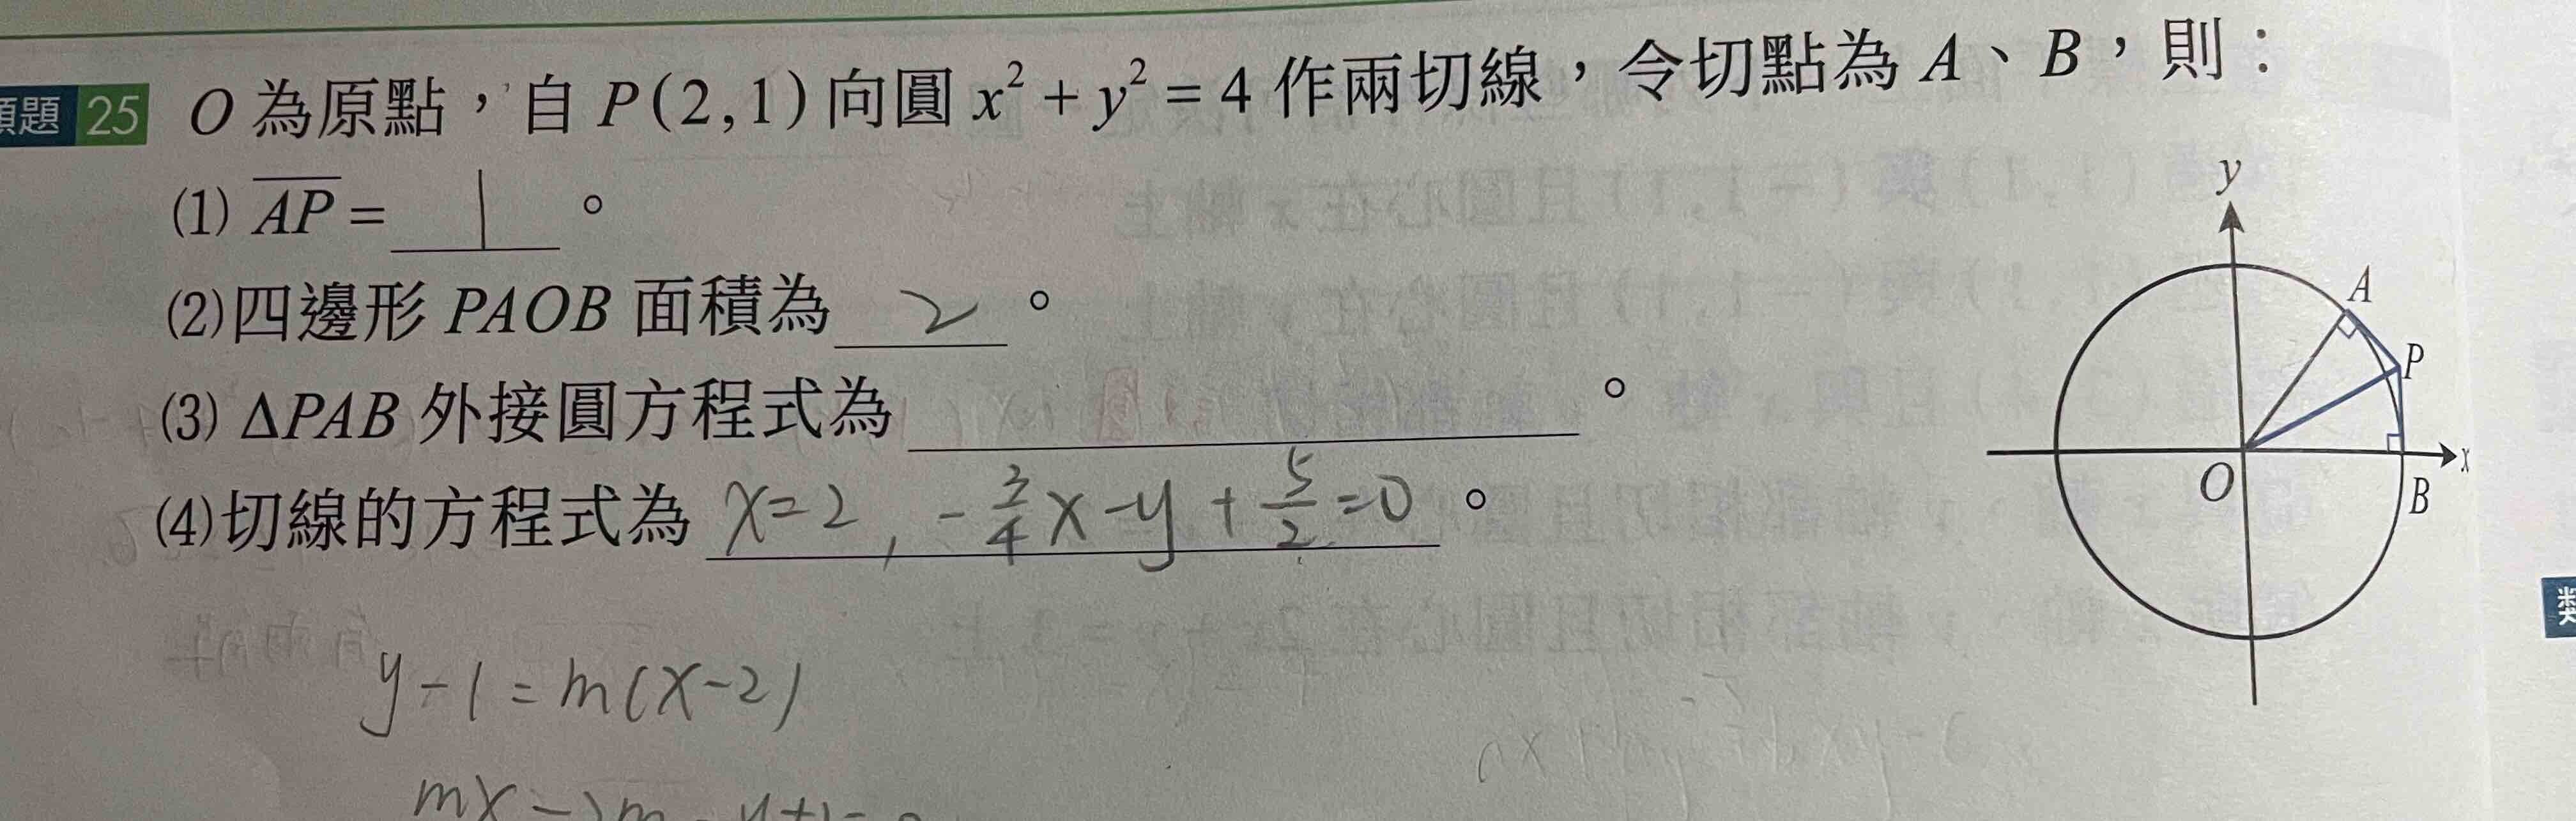 題 25 O 為原點，自 P(2,1) 向圓 x² + y² = 4 作兩切線，令切點為 A、B，則：
(1) AP = 1 。
(2)四邊形 PAOB 面積為 2 。
(3) ΔPAB 外接圓方程式為 。
(4)切線的方程式為 x=2 , -3/4x-y+5/2=0 。
y
A
P
x
O
B
y-1=m(x-2)
mx-2m-y+1=0